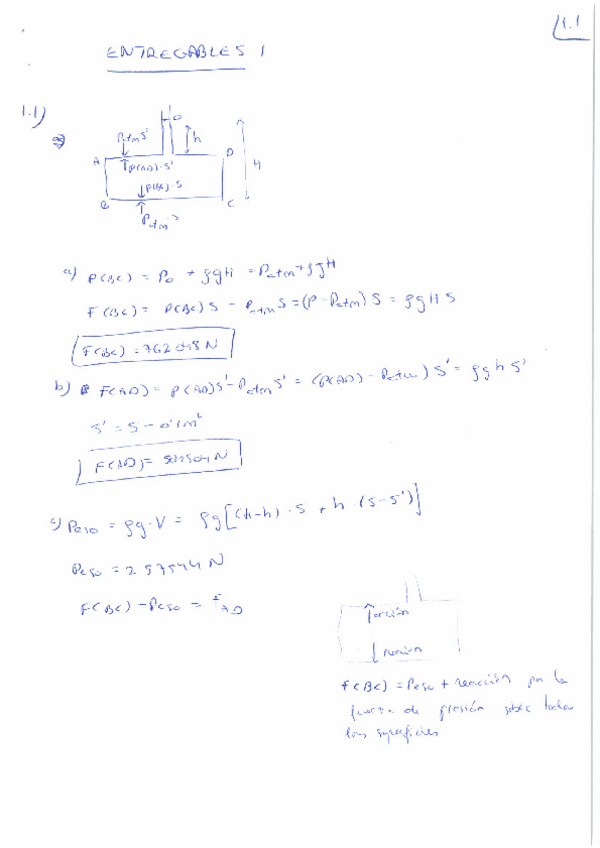 1.1
ENTREGABLES 1
1.1)
Patm S'
h
A
P(AD)·S'
D
H
P(BC)·S
B
C
Patm·S
a) P(BC) = Po + ρgH = Patm + ρgH
F(BC) = P(BC) S - Patm S = (P - Patm) S = ρgH S
b) F(AD) = P(AD)S' - Patm S' = (P(AD) - Patm) S' = ρgh S'
S' = S - 0'1m²
c) Peso = ρg·V = ρg[(H-h)·S + h·(S-S')]
Peso = 257544 N
F(BC) - Peso = FAD
acción
reacción
F(BC) = Peso + reacción por la
fuerza de presión sobre todas
las superficies